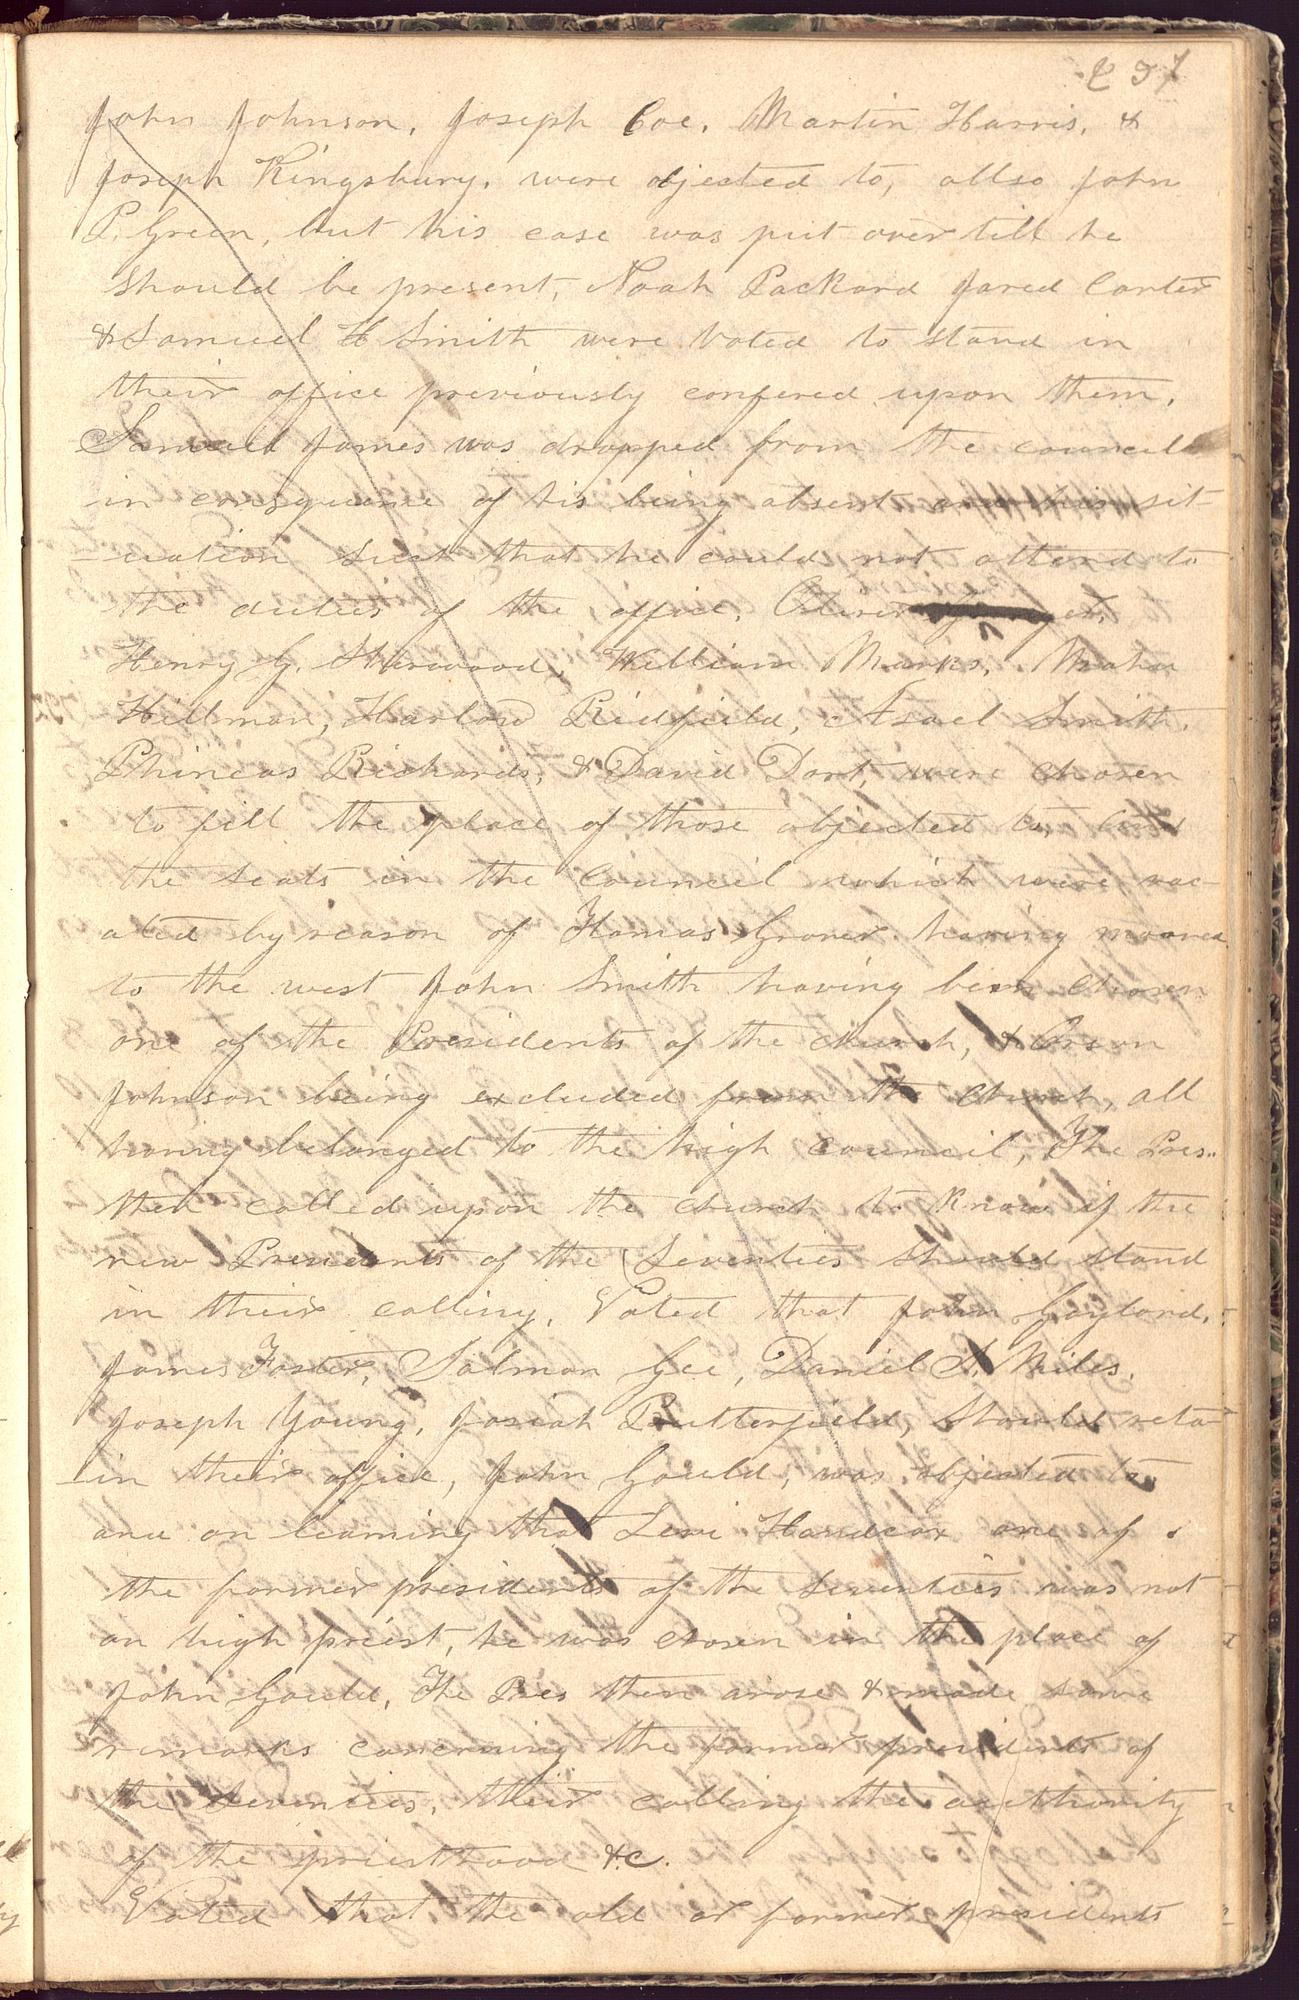 237
John Johnson, Joseph Coe, Martin Harris, &
Joseph Kingsbury, were objected to, allso John
P. Green, but his case was put over till he
should be present, Noah Packard Jared Carter
& Samuel H Smith were voted to stand in
their office previously confered upon them,
Samuel James was dropped from the council
in consequence of his being absent and his sit-
uation such that he could not attend to
the duties of the office, Oliver
Henry G. Sherwood, William Marks, Mahu
Hillman, Harlow Ridfield, Asael Smith,
Phineas Richards, & David Dort, were chosen
to fill the place of those objected to, and
the seats in the council which were vac-
ated by reason of Thomas Grover having mooved
to the west John Smith having been chosen
one of the Presidents of the church, & Orson
Johnson being excluded from the church, all
having belonged to the high council, The Pres..
then called upon the church to know if the
new Presidents of the Seventies should stand
in their calling, Voted that John Gaylord,
James Foster, Salmon Gee, Daniel S. Miles,
Joseph Young, Josiah Butterfield, Should reta-
-in their office, John Gould, was objected to
and on learning that Levi Handcox one of
the former presidents of the Seventies was not
an high priest, he was chosen in the place of
John Gould, The Pres then arose & made some
remarks concerning the former presidents of
the Seventies, their calling the authority
of the priesthood &c.
Voted that the old or former presidents